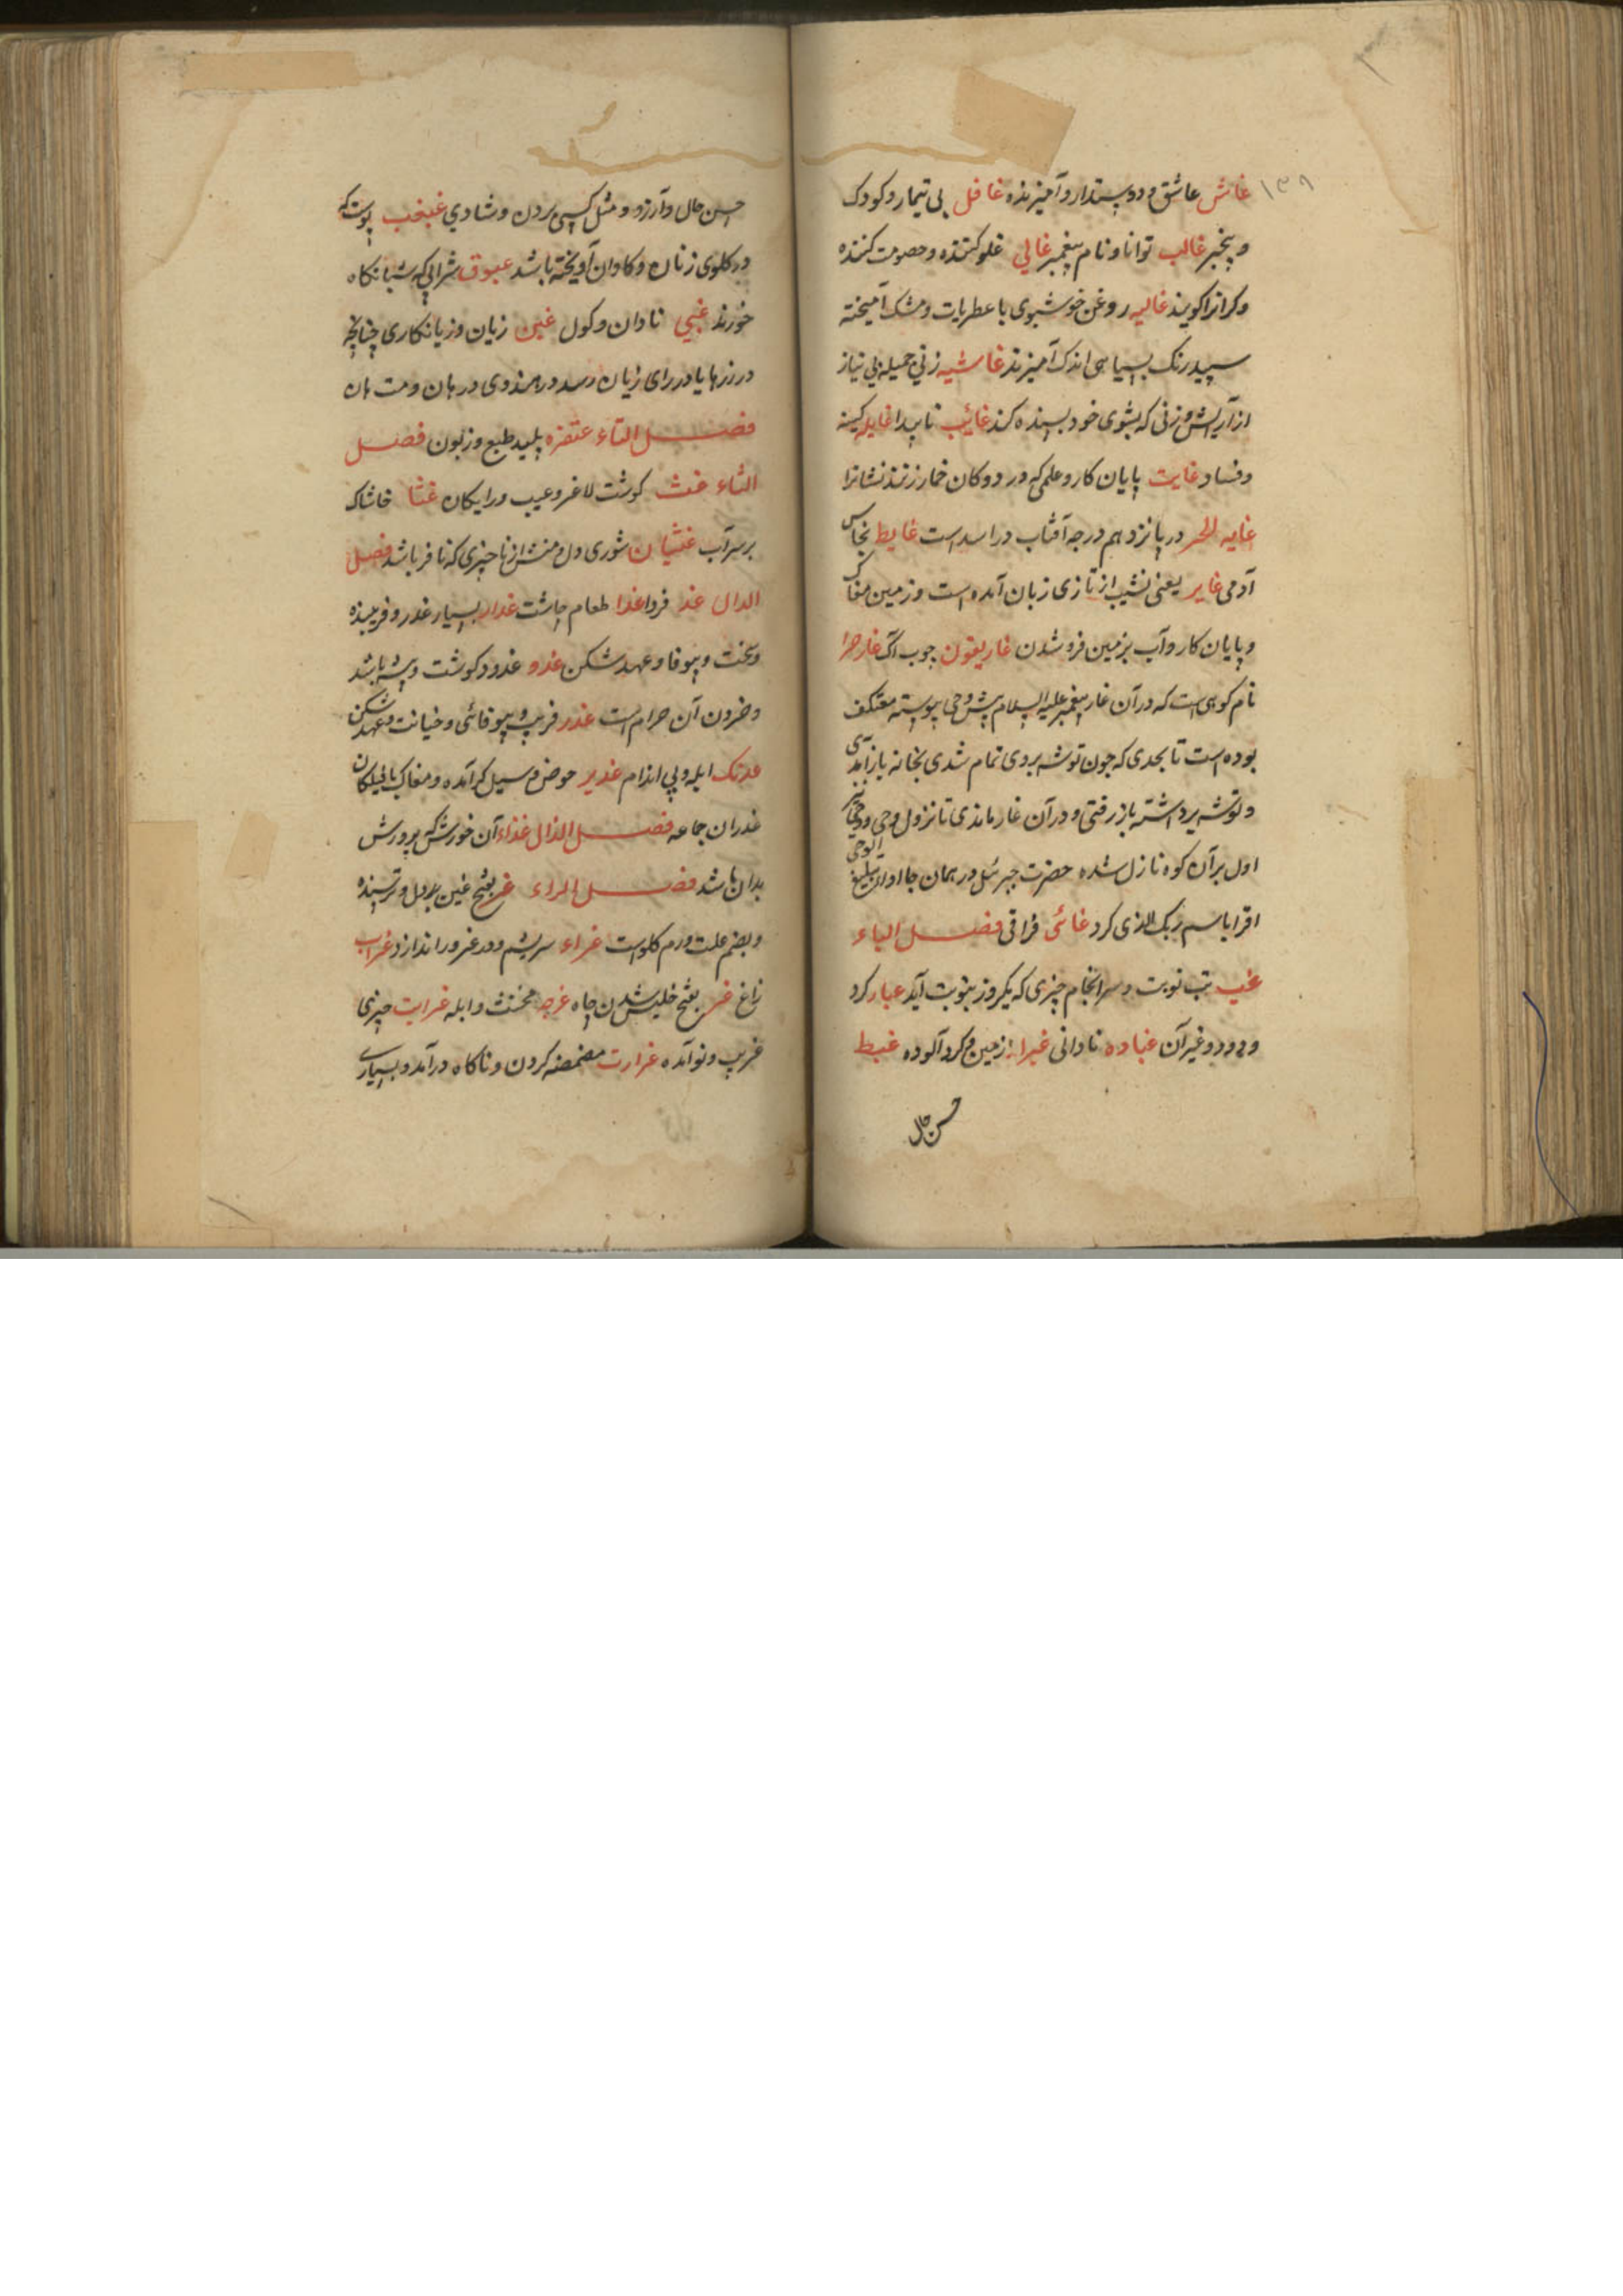 ۱۳۹
غاش عاشق و دوستدار و آمیزنده غافل بی تیمار و کودک
و بیخبر غالب توانا و نام پیغمبر غالی غلو کننده و خصومت کننده
و کرانرا کویند غالیه روغن خوشبوی با عطریات و مشک آمیخته
سپید رنک بسیاهی اندک آمیزند غاشیه زنی جمیله بی نیاز
از آرایش و زنی که بشوی خود بسنده کند غائب ناپیدا غایله کینه
و فساد غایت پایان کار و علمی که در دوکان خمار زنند نشانرا
غایه الحر در پانزدهم درجه آفتاب در اسد است غایط نجاس
آدمی غایر یعنی نشیب از تازی زبان آمده است و زمین مغاک
و پایان کار و آب بزمین فرو شدن غاریقون چوب آک غار حرا
نام کوهی است که در آن غار پیغمبر علیه السلام پیش وحی پیوسته معتکف
بوده است تا بحدی که چون توشه بردی تمام شدی بخانه باز آمدی
و توشه برداشته باز رفتی و در آن غار ماندی تا نزول وحی و وحی نیز
اول بر آن کوه نازل شده حضرت جبرئل در همان جا اوان تبلیغ الوحی
اقرا باسم ربک الذی کرد غائی فراقی فصل الباء
غب تب نوبت و سرانجام چیزی که یکروز بنوبت آید غبار کرد
و دود و غیر آن غباده نادانی غبرا زمین و کرد آلوده غبط
حسن حال
حسن حال و آرزو و مثل کسی بردن و شادی غبغب پوست که
در کلوی زنان و کاوان آویخته باشد غبوق شرابی که شبانکاه
خورند غبی نادان و کول غبن زیان و زیانکاری چنانچه
در زرها یا در رای زیان رسد در هندوی درهان و مت هان
فصل التاء عتفره پلید طبع و زبون فصل
الثاء غث کوشت لاغر و عیب و رایکان غثا خاشاک
بر سر آب غثیان شوری دل و منش از ناچیزی که نافر باشد فصل
الدال غد فردا غدا طعام چاشت غدار بسیار غدر و فریبنده
و سخت و بیوفا و عهد شکن غدد غدود کوشت و پیه باشد
و خرون آن حرام است غدر فریب و بیوفائی و خیانت و عهد شکن
غدنک ابله و بی اندام غدیر حوض و سیل کرد آمده و مغاک بانیلکان
غدران جماعه فصل الذال غذاء آن خورش که پرورش
بدان باشد فصل الراء غر بفتح غین بددل و ترسنده
و بضم علت ورم کلو است غراء سریشم و در غرور اندازد غراب
زاغ غر بفتح خلیش شدن چاه غرچه مخنث و ابله غرایت چیزی
غریب و نو آمده غرارت مضمضه کردن و ناکاه در آمد و بسیاری